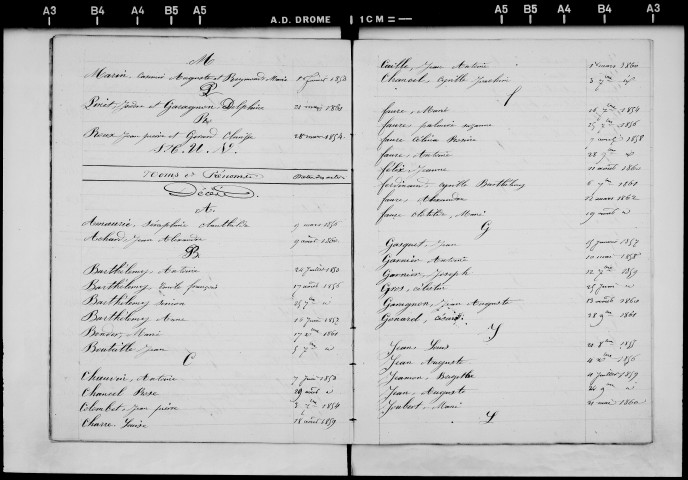 A3 B4 A4 B5 A5 A.D. DROME 1 CM = A5 B5 A4 B4 A3
M
Marin, Casimir Auguste et Reymond Marie 1853
P
Poict, Isidore et Garagnon Delphine 21 mai 1860
R
Roux Jean pierre et Gerard 28 mars 1854
S. T. U. V.
Noms et Prénoms Dates des actes
Décès
A.
Amaurie, Séraphie Clanthilde 9 mars 1856
Achard Jean Alexandre 9 août 1860
B
Barthélemy, Antoine 24 juillet 1853
Barthélemy Emile françois 17 août 1856
Barthélemy 25 7bre d°
Barthélemy Anne 10 Juin 1857
Bonder, Marie 17 1860
Bouteille Jean 5 7bre d°
C
Chauvin, Antoine 7 Juin 1853
Chancel Rose 29 août d°
Colombet, Jean pierre 3 1854
Charre Louise 18 août 1859
Caille, Jean Antoine 1er mars 1860
Chancel, Cyrille Joachim 3 7bre d°
f
faure, Marie 16 1854
faure, palmire suzanne 1856
faure Célina Rosine 7 avril 1858
faure, Antoine 28 9bre d°
félix, Jeanne 11 août 1860
ferdinand Cyrille Barthélemy 6 7bre 1861
faure, Alexandre mars 1862
faure Clotilde, Marie 19 août d°
G
Gasquet, Jean 15 janvier 1857
Garnier Antoine 10 mai 1858
Garnier, Joseph 12 7bre 1859
Gros, Célestin 25 Juin d°
Garagnon, Jean Auguste 13 août 1860
Gonard, Césaire 28 9bre 1861
J
Jean Louis 21 8bre 1855
Jean Auguste 4 1856
Jeannon Baptiste 11 juillet 1859
Jean, Auguste 24 9bre d°
Joubert Marie 21 mai 1860
L